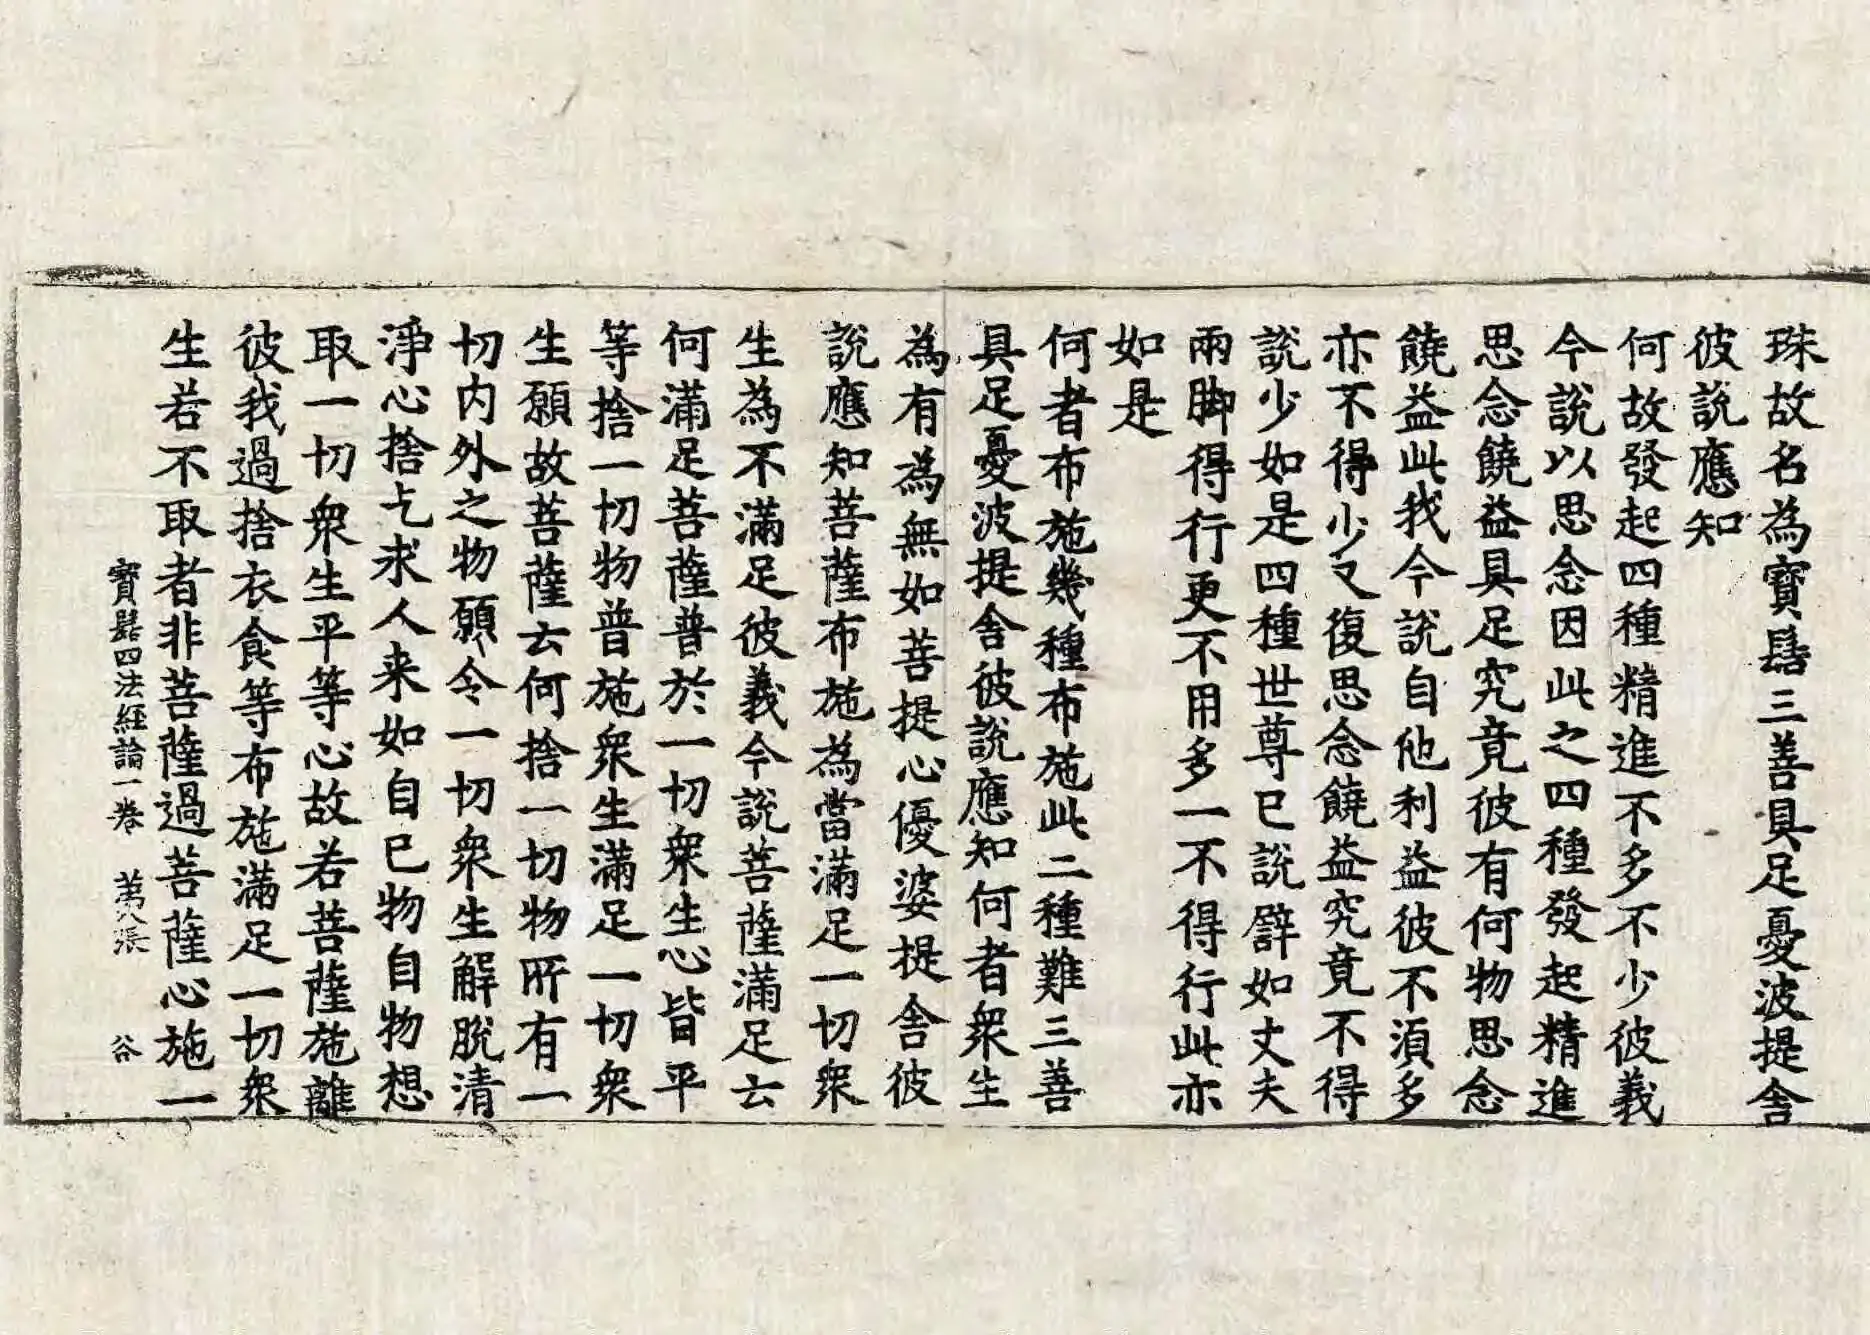 珠故名為寶髻三善具足憂波提舍
彼說應知
何故發起四種精進不多不少彼義
今說以思念因此之四種發起精進
思念饒益具足究竟彼有何物思念
饒益此我今說自他利益彼不湏多
亦不得少又復思念饒益究竟不得
說少如是四種世尊已說譬如丈夫
兩脚得行更不用多一不得行此亦
如是
何者布施幾種布施此二種難三善
具足憂波提舍彼說應知何者衆生
為有為無如菩提心優婆提舍彼
說應知菩薩布施為當滿足一切衆
生為不滿足彼義今說菩薩滿足云
何滿足菩薩普於一切衆生心皆平
等捨一切物普施衆生滿足一切衆
生願故菩薩云何捨一切物所有一
切内外之物願令一切衆生解脫清
淨心捨乞求人来如自已物自物想
取一切衆生平等心故若菩薩施離
彼我過捨衣食等布施滿足一切衆
生若不取者非菩薩過菩薩心施一
寶髻四法經論一卷　第八張　谷